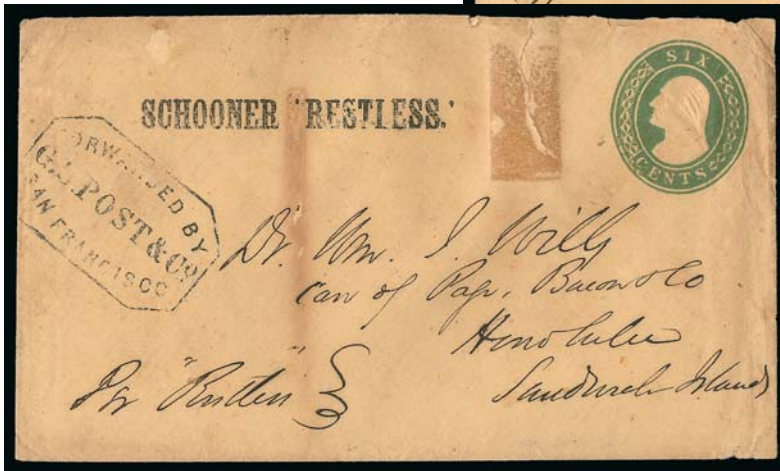 SCHOONER 'RESTLESS.'
SIX
CENTS
FORWARDED BY
G.L. POST & Co.
SAN FRANCISCO
Dr. Wm. J. Wills
care of Page, Bacon & Co
Honolulu
Sandwich Islands
Per "Restless"